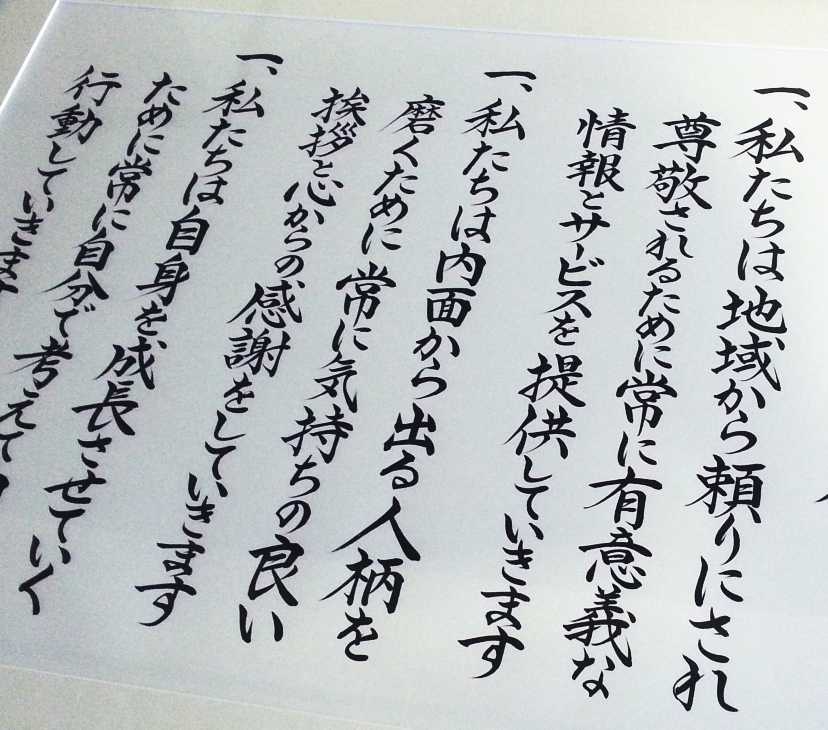 一、私たちは地域から頼りにされ
尊敬されるために常に有意義な
情報とサービスを提供していきます
一、私たちは内面から出る人柄を
磨くために常に気持ちの良い
挨拶と心からの感謝をしていきます
一、私たちは自身を成長させていく
ために常に自分で考えて
行動していきます